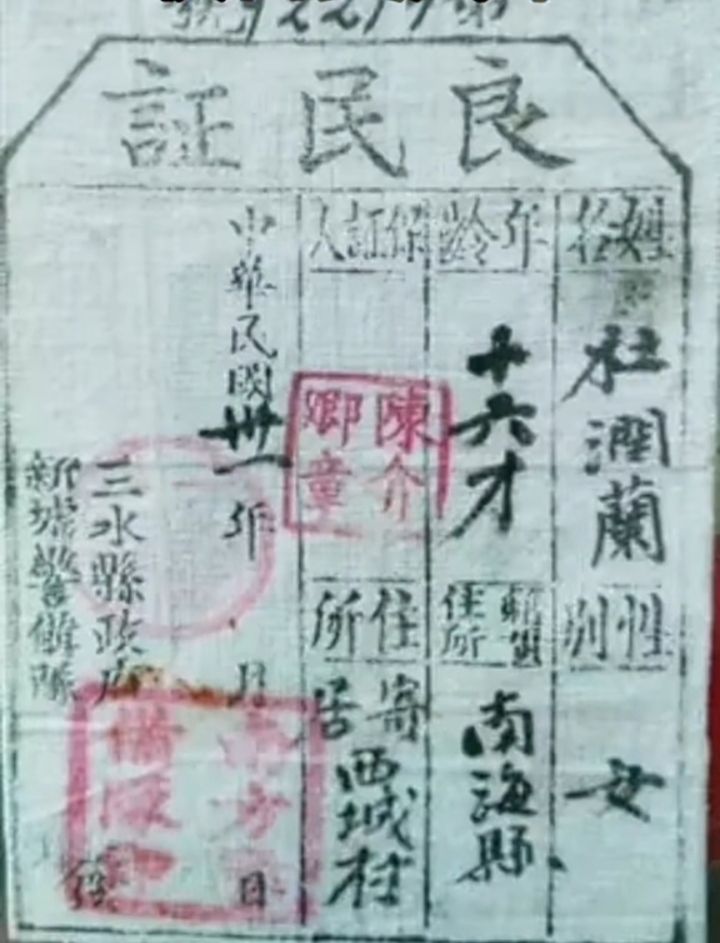 良民証
姓名
杜潤蘭
性別
女
年齡
十六才
住所
南海縣
保証人
陳介
鄉章
住所
寄居
西城村
中華民國卅一年 月 日
三水縣政府
新城警備隊